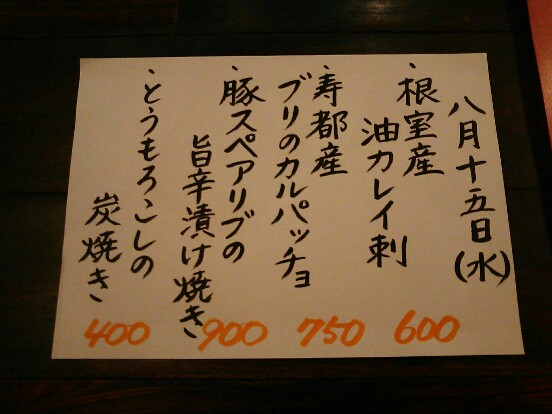 八月十五日(水)
・根室産
油カレイ刺
600
・寿都産
ブリのカルパッチョ
750
・豚スペアリブの
旨辛漬け焼き
900
・とうもろこしの
炭焼き
400